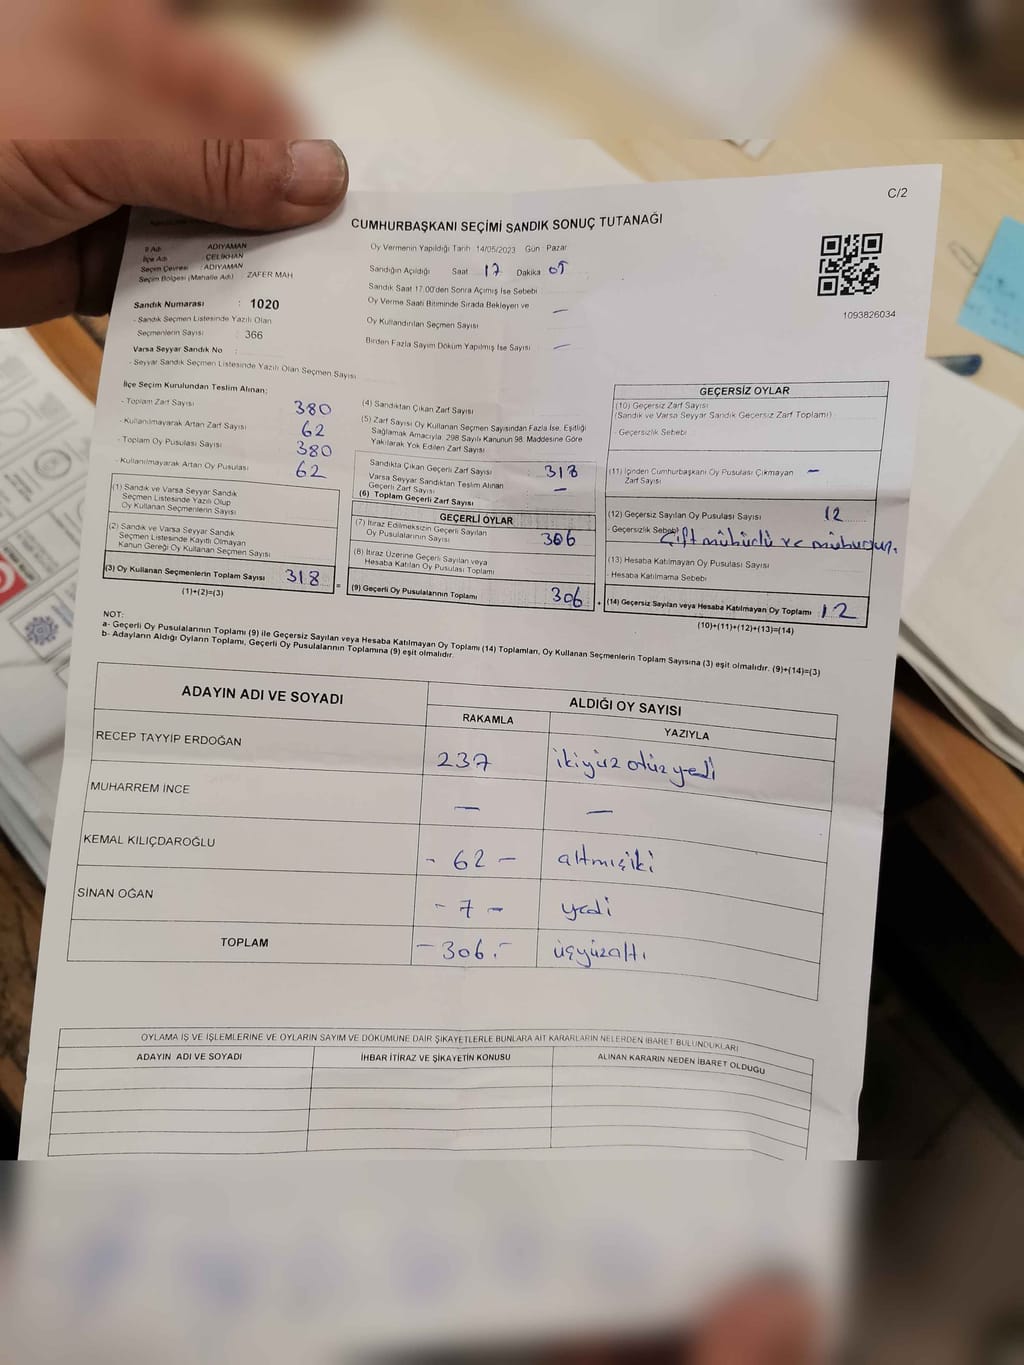 C/2
CUMHURBAŞKANI SEÇİMİ SANDIK SONUÇ TUTANAĞI
İl Adı : ADIYAMAN
İlçe Adı : ÇELİKHAN
Seçim Çevresi : ADIYAMAN
Seçim Bölgesi (Mahalle Adı) : ZAFER MAH
Sandık Numarası : 1020
- Sandık Seçmen Listesinde Yazılı Olan
Seçmenlerin Sayısı : 366
Varsa Seyyar Sandık No :
- Seyyar Sandık Seçmen Listesinde Yazılı Olan Seçmen Sayısı
Oy Vermenin Yapıldığı Tarih 14/05/2023 Gün : Pazar
Sandığın Açıldığı Saat 17 Dakika 05
Sandık Saat 17.00'den Sonra Açılmış İse Sebebi
Oy Verme Saati Bitiminde Sırada Bekleyen ve
Oy Kullandırılan Seçmen Sayısı —
Birden Fazla Sayım Döküm Yapılmış İse Sayısı —
1093826034
İlçe Seçim Kurulundan Teslim Alınan;
- Toplam Zarf Sayısı 380
- Kullanılmayarak Artan Zarf Sayısı 62
- Toplam Oy Pusulası Sayısı 380
- Kullanılmayarak Artan Oy Pusulası 62
(1) Sandık ve Varsa Seyyar Sandık
Seçmen Listesinde Yazılı Olup
Oy Kullanan Seçmenlerin Sayısı
(2) Sandık ve Varsa Seyyar Sandık
Seçmen Listesinde Kayıtlı Olmayan
Kanun Gereği Oy Kullanan Seçmen Sayısı
(3) Oy Kullanan Seçmenlerin Toplam Sayısı 318
(1)+(2)=(3)
(4) Sandıktan Çıkan Zarf Sayısı
(5) Zarf Sayısı Oy Kullanan Seçmen Sayısından Fazla İse, Eşitliği
Sağlamak Amacıyla; 298 Sayılı Kanunun 98. Maddesine Göre
Yakılarak Yok Edilen Zarf Sayısı
Sandıkta Çıkan Geçerli Zarf Sayısı 318
Varsa Seyyar Sandıktan Teslim Alınan
Geçerli Zarf Sayısı —
(6) Toplam Geçerli Zarf Sayısı
GEÇERLİ OYLAR
(7) İtiraz Edilmeksizin Geçerli Sayılan
Oy Pusulalarının Sayısı 306
(8) İtiraz Üzerine Geçerli Sayılan veya
Hesaba Katılan Oy Pusulası Toplamı
= (9) Geçerli Oy Pusulalarının Toplamı 306
GEÇERSİZ OYLAR
(10) Geçersiz Zarf Sayısı
(Sandık ve Varsa Seyyar Sandık Geçersiz Zarf Toplamı)
- Geçersizlik Sebebi
(11) İçinden Cumhurbaşkanı Oy Pusulası Çıkmayan
Zarf Sayısı —
(12) Geçersiz Sayılan Oy Pusulası Sayısı 12
- Geçersizlik Sebebi Çift mühürlü ve
(13) Hesaba Katılmayan Oy Pusulası Sayısı
- Hesaba Katılmama Sebebi
+ (14) Geçersiz Sayılan veya Hesaba Katılmayan Oy Toplamı 12
(10)+(11)+(12)+(13)=(14)
NOT:
a- Geçerli Oy Pusulalarının Toplamı (9) ile Geçersiz Sayılan veya Hesaba Katılmayan Oy Toplamı (14) Toplamları, Oy Kullanan Seçmenlerin Toplam Sayısına (3) eşit olmalıdır. (9)+(14)=(3)
b- Adayların Aldığı Oyların Toplamı, Geçerli Oy Pusulalarının Toplamına (9) eşit olmalıdır.
ADAYIN ADI VE SOYADI ALDIĞI OY SAYISI
RAKAMLA YAZIYLA
RECEP TAYYİP ERDOĞAN 237 ikiyüz otuz yedi
MUHARREM İNCE — —
KEMAL KILIÇDAROĞLU - 62 - altmışiki
SİNAN OĞAN - 7 - yedi
TOPLAM - 306.- üçyüzaltı
OYLAMA İŞ VE İŞLEMLERİNE VE OYLARIN SAYIM VE DÖKÜMÜNE DAİR ŞİKAYETLERLE BUNLARA AİT KARARLARIN NELERDEN İBARET BULUNDUKLARI
ADAYIN ADI VE SOYADI İHBAR İTİRAZ VE ŞİKAYETİN KONUSU ALINAN KARARIN NEDEN İBARET OLDUĞU